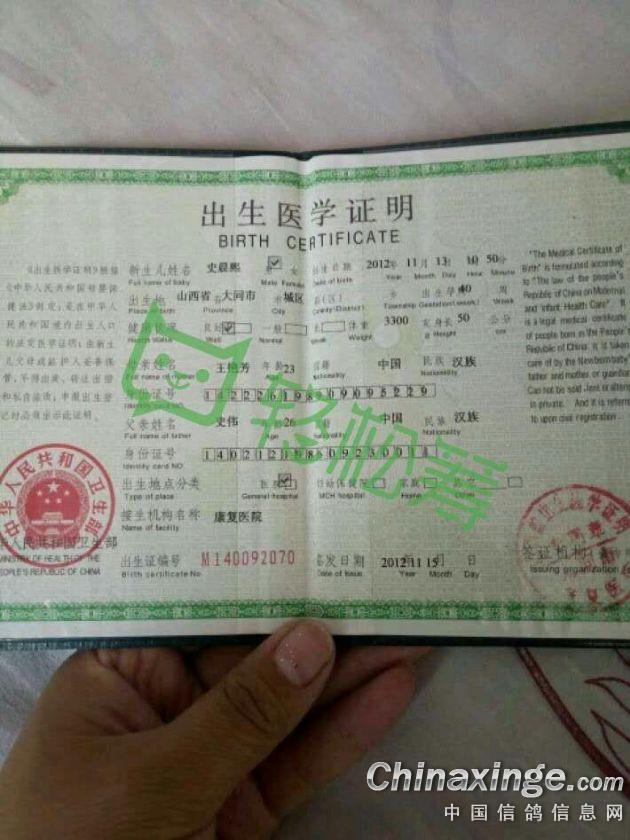 出生医学证明
BIRTH CERTIFICATE
《出生医学证明》根据
《中华人民共和国母婴保
健法》制定,是在中华人
民共和国境内出生人口
的法定医学证明。由新生
儿父母或监护人妥善保
管,不得出卖、转让出借
和私自涂改;申报出生登
记时必须出示此证明。
中华人民共和国卫生部
MINISTRY OF HEALTH OF THE
PEOPLE'S REPUBLIC OF CHINA
新生儿姓名 史晨熙 女 出生日期 2012年 11月 13日 10 50分
Full name of baby Male Female Date of birth Year Month Day Hour Minute
出生地 山西省 大同市 城区 出生孕 40 周
Place of birth Province City County (District) Township Gestation (week) Week
健康状况 良好 一般 体重 3300 克 身长 50 公分
Health status Well Normal Weak Weight Height
母亲姓名 王艳芳 年龄 23 国籍 中国 民族 汉族
Full name of mother Age Nationality Nationality
身份证号
Identity card NO
父亲姓名 史伟 26 中国 民族 汉族
Full name of father Age Nationality Nationality
身份证号
Identity card NO
出生地点分类 医院 妇幼保健院 家庭 其它
Type of place General hospital MCH hospital Home Other
接生机构名称 康复医院
Name of facility
出生证编号 M140092070 签发日期 2012 11 15 日
Birth certificate No. Date of Issue Year Month Day
"The Medical Certificate of
Birth" is formulated according
to "The law of the people's
Republic of China on Maternal
and Infant Health Care". It
is a legal medical certificate
of people born in the People's
Republic of China. It is taken
care of by the Newborn baby'
father and mother or guardian.
Can not be sold, lent or altered
in private. And it is referred
to upon civil registration.
签证机构
Issuing organization
中华人民共和国卫生部
轻松筹
Chinaxinge.com
中国信鸽信息网